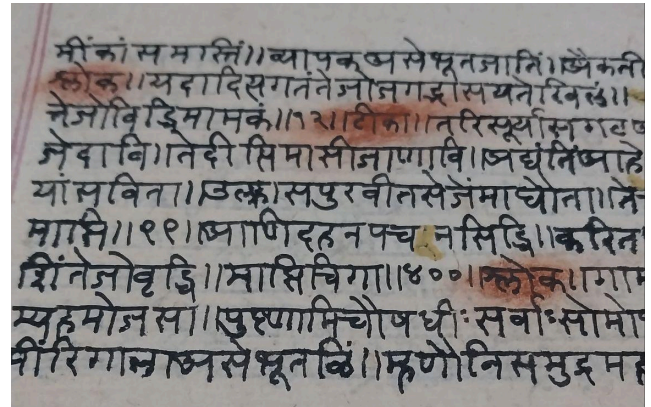 मीं कां समाप्तिं॥ व्यापक असे भूतजातिं॥ ऐकती
श्लोक॥ यदादित्सगतंतेजोजगद्भासयतेखिलं॥
तेजोविद्धिमामकं॥१२॥ टीका॥ तरि सूर्या सगट
जे दावि॥ ते दीप्ति मासी जाणावि॥ आद्यंतिं आहे
यां सविता॥ उल्का सपुरवीतसे जें माघौता॥ ते
मासि॥९९॥ आणि दहन पचन सिद्धि॥ करित
शिं तेजोवृद्धि॥ मासिचि गा॥४००॥ श्लोक॥ गाम
म्यहमोजसा॥ पुष्णामिचौषधीः सर्वाः सोमो
वींरिगाला असे भूतळिं॥ म्हणौनि समुद्र मह